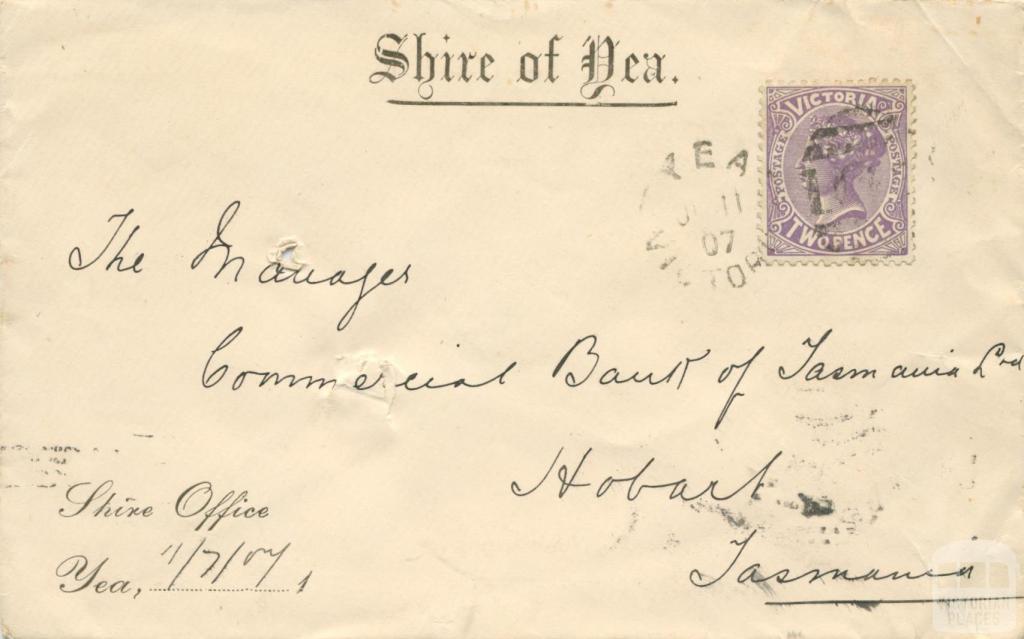 Shire of Yea.
VICTORIA
POSTAGE
POSTAGE
TWO PENCE
YEA
11
07
The Manager
Commercial Bank of Tasmania Ltd
Hobart
Tasmania
Shire Office
Yea, 11/7/07 1
VICTORIAN
PLACES